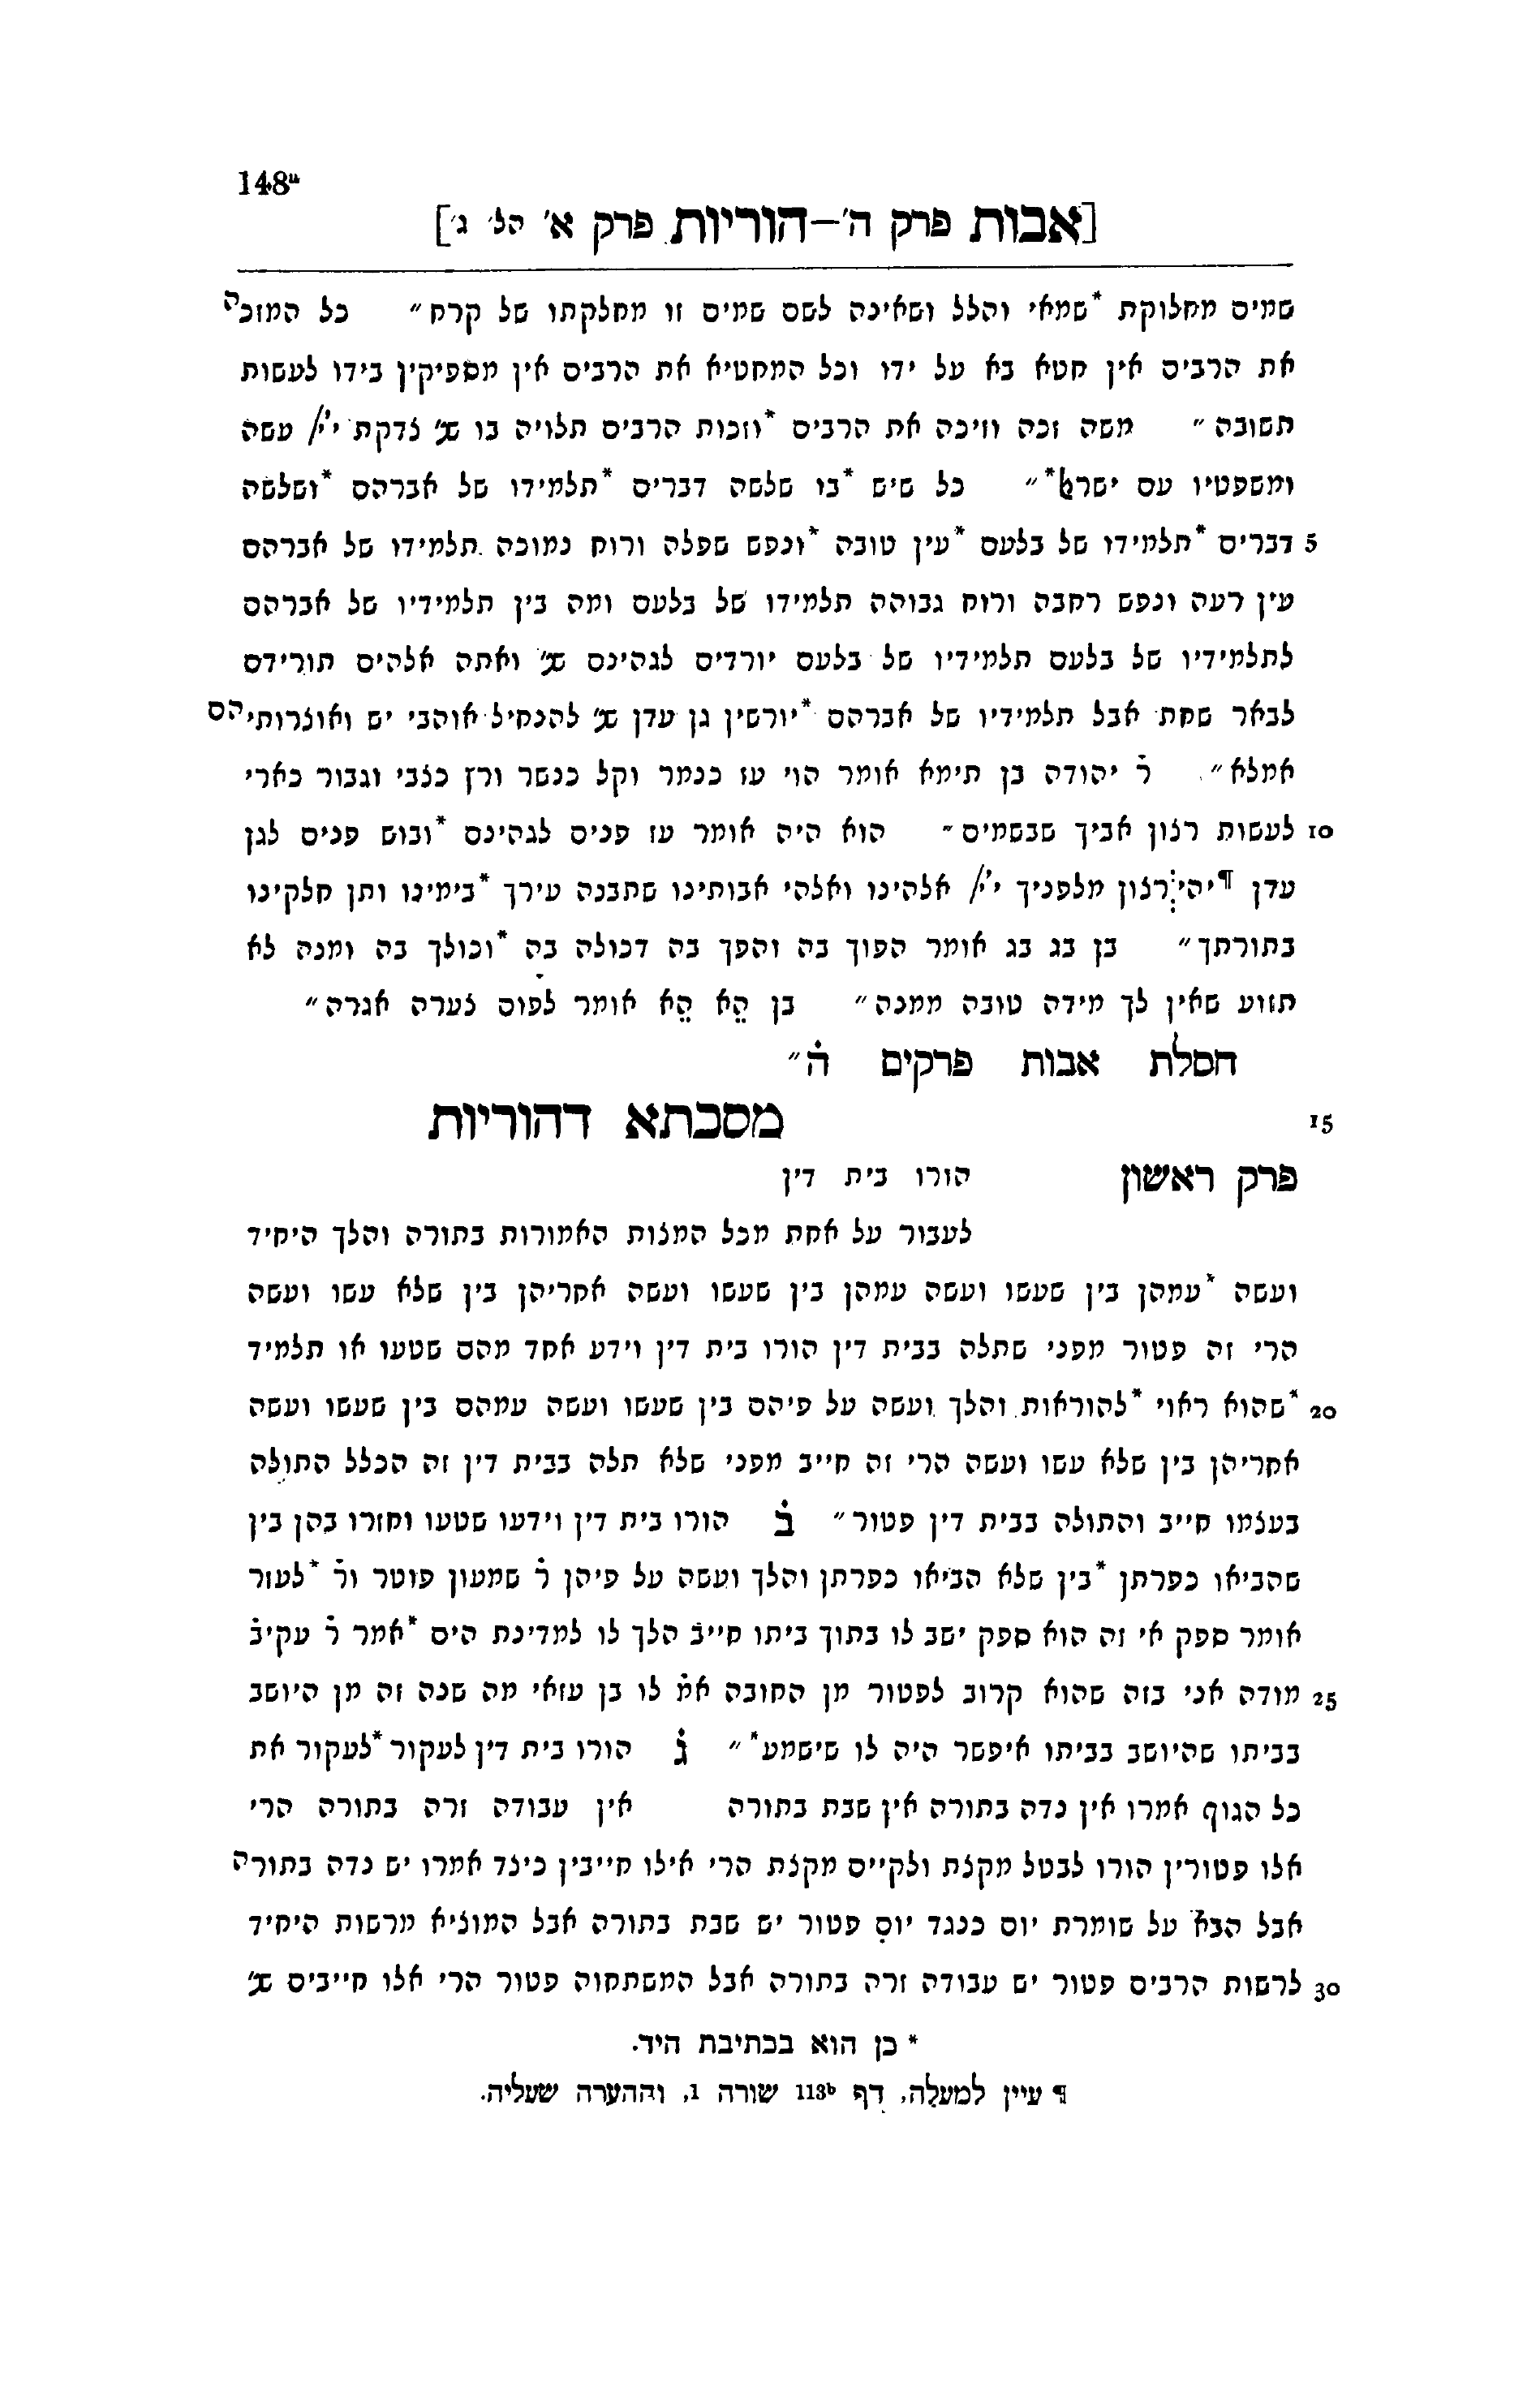 148ª
[אבות פרק ה'–הוריות פרק א' הל' ג']
שמים מחלוקת *שמאי והלל ושאינה לשם שמים זו מחלקתו של קרח״ כל המזכה
את הרבים אין חטא בא על ידו וכל המחטיא את הרבים אין מספיקין בידו לעשות
תשובה״ משה זכה וזיכה את הרבים *וזכות הרבים תלויה בו שנ' צדקת י'י/ עשה
ומשפטיו עם ישראל*״ כל שיש *בו שלשה דברים *תלמידו של אברהם *ושלשה
5 דברים *תלמידו של בלעם *עין טובה *ונפש שפלה ורוח נמוכה תלמידו של אברהם
עין רעה ונפש רחבה ורוח גבוהה תלמידו של בלעם ומה בין תלמידיו של אברהם
לתלמידיו של בלעם תלמידיו של בלעם יורדים לגהינם שנ' ואתה אלהים תורידם
לבאר שחת אבל תלמידיו של אברהם *יורשין גן עדן שנ' להנחיל אוהבי יש ואוצרותיהם
אמלא״ ר̇ יהודה בן תימא אומר הוי עז כנמר וקל כנשר ורץ כצבי וגבור כארי
10 לעשות רצון אביך שבשמים״ הוא היה אומר עז פנים לגהינם *ובוש פנים לגן
עדן ¶יהי רצון מלפניך י'י/ אלהינו ואלהי אבותינו שתבנה עירך *בימינו ותן חלקינו
בתורתך״ בן בג בג אומר הפוך בה והפך בה דכולה בה *וכולך בה ומנה לא
תזוע שאין לך מידה טובה ממנה״ בן הֵא הֵא אומר לפום צערה אגרה״
חסלת אבות פרקים ה̇״
15 מסכתא דהוריות
פרק ראשון הורו בית דין
לעבור על אחת מכל המצות האמורות בתורה והלך היחיד
ועשה *עמהן בין שעשו ועשה עמהן בין שעשו ועשה אחריהן בין שלא עשו ועשה
הרי זה פטור מפני שתלה בבית דין הורו בית דין וידע אחד מהם שטעו או תלמיד
20 *שהוא ראוי *להוראות והלך ועשה על פיהם בין שעשו ועשה עמהם בין שעשו ועשה
אחריהן בין שלא עשו ועשה הרי זה חייב מפני שלא תלה בבית דין זה הכלל התולה
בעצמו חייב והתולה בבית דין פטור״ ב̇ הורו בית דין וידעו שטעו וחזרו בהן בין
שהביאו כפרתן *בין שלא הביאו כפרתן והלך ועשה על פיהן ר̇ שמעון פוטר ור̇ *לעזר
אומר ספק אי זה הוא ספק ישב לו בתוך ביתו חייב̇ הלך לו למדינת הים *אמר ר̇ עקיב̇
25 מודה אני בזה שהוא קרוב לפטור מן החובה אמ̇ לו בן עזאי מה שנה זה מן היושב
בביתו שהיושב בביתו איפשר היה לו שישמע*״ ג̇ הורו בית דין לעקור *לעקור את
כל הגוף אמרו אין נדה בתורה אין שבת בתורה אין עבודה זרה בתורה הרי
אלו פטורין הורו לבטל מקצת ולקיים מקצת הרי אילו חייבין כיצד אמרו יש נדה בתורה
אבל הבא על שומרת יום כנגד יום פטור יש שבת בתורה אבל המוציא מרשות היחיד
30 לרשות הרבים פטור יש עבודה זרה בתורה אבל המשתחוה פטור הרי אלו חייבים שנ'
* כן הוא בכתיבת היד.
¶ עיין למעלה, דף 113ᵇ שורה 1, וההערה שעליה.